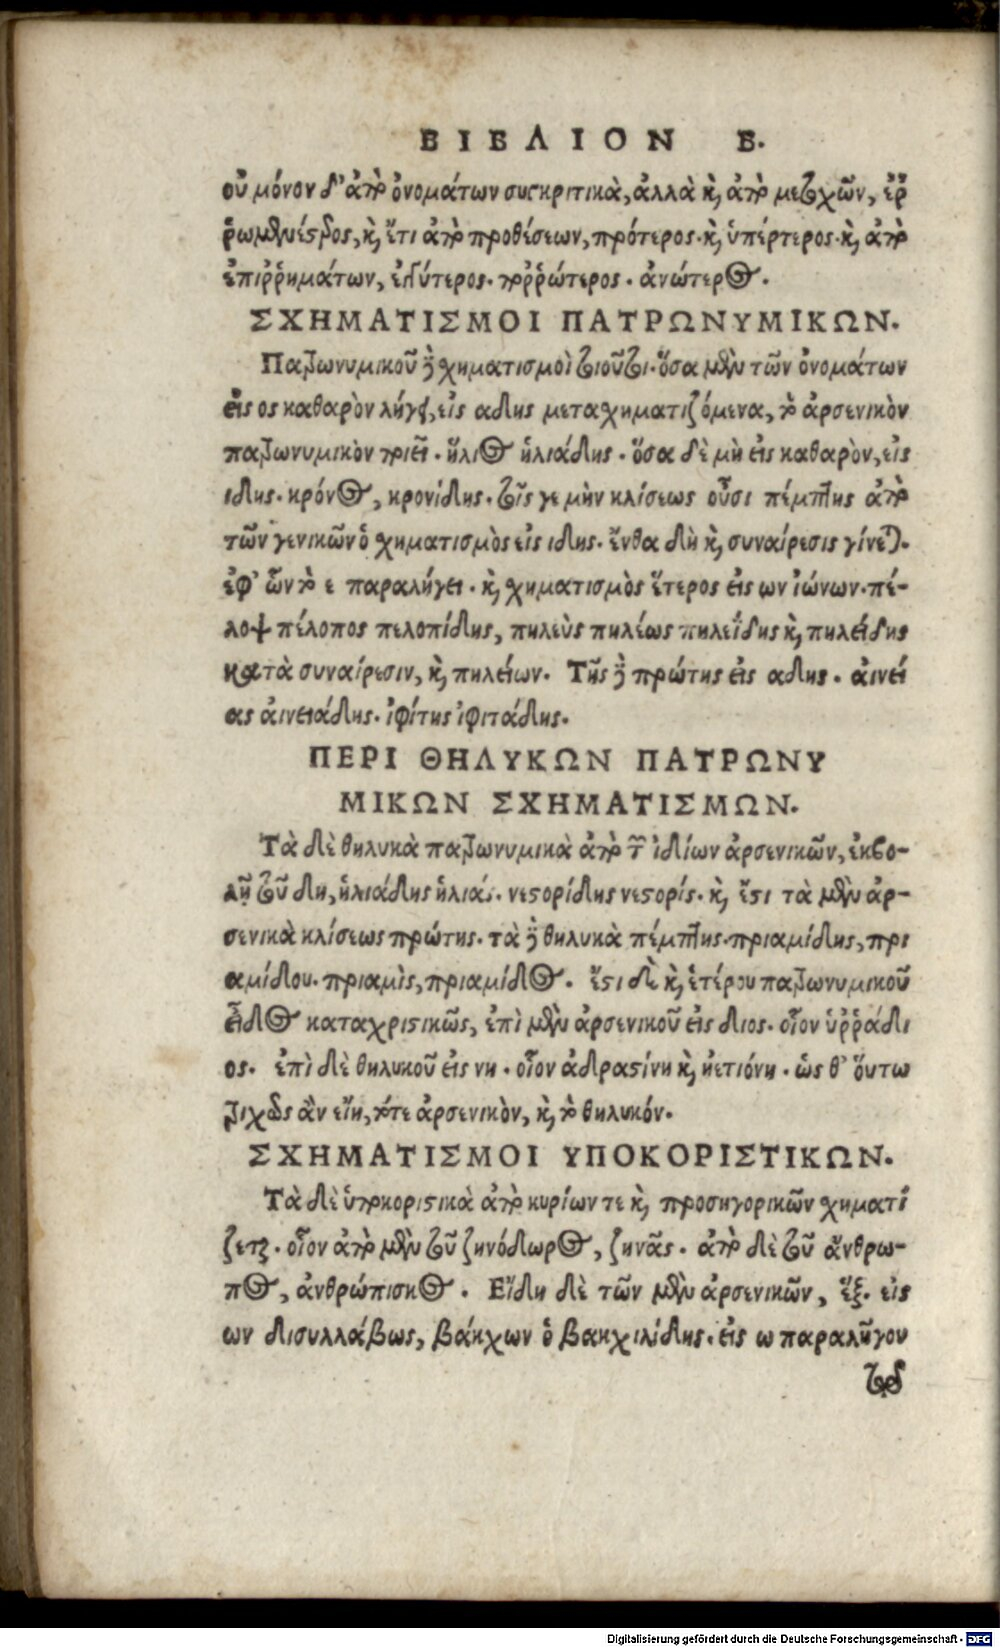 ΒΙΒΛΙΟΝ Β.
οὐ μόνον δ' ἀπὸ ὀνομάτων συγκριτικὰ, ἀλλὰ κ, ἀπὸ μετοχῶν, ἐῤ
ῥωμενέστερος, κ, ἔτι ἀπὸ προθέσεων, πρότερος. κ, ὑπέρτερος. κ, ἀπὸ
ἐπιῤῥημάτων, ἐγγύτερος. ποῤῥώτερος. ἀνώτερος.
ΣΧΗΜΑΤΙΣΜΟΙ ΠΑΤΡΩΝΥΜΙΚΩΝ.
Πατρωνυμικοῦ δὲ σχηματισμοὶ τοιοῦτοι. ὅσα μὲν τῶν ὀνομάτων
εἰς ος καθαρὸν λήγει, εἰς αδης μετασχηματιζόμενα, τὸ ἀρσενικὸν
πατρωνυμικὸν ποιεῖ. ἥλιος ἡλιάδης. ὅσα δὲ μὴ εἰς καθαρὸν, εἰς
ιδης. κρόνος, κρονίδης. τοῖς γε μὴν κλίσεως οὖσι πέμπτης ἀπὸ
τῶν γενικῶν ὁ σχηματισμὸς εἰς ιδης. ἔνθα δὴ κ, συναίρεσις γίνεται.
ἐφ' ὧν τὸ ε παραλήγει. κ, σχηματισμὸς ἕτερος εἰς ων ἰώνων. πέ-
λοψ πέλοπος πελοπίδης, πηλεὺς πηλέως πηλεΐδης κ, πηλείδης
κατὰ συναίρεσιν, κ, πηλείων. Τῆς δὲ πρώτης εἰς αδης. αἰνεί
ας αἰνειάδης. ἰφίτης ἰφιτάδης.
ΠΕΡΙ ΘΗΛΥΚΩΝ ΠΑΤΡΩΝΥ
ΜΙΚΩΝ ΣΧΗΜΑΤΙΣΜΩΝ.
Τὰ δὲ θηλυκὰ πατρωνυμικὰ ἀπὸ τῶν ἰδίων ἀρσενικῶν, ἐκβο-
λῇ τοῦ δη, ἡλιάδης ἡλιάς. νεστορίδης νεστορίς. κ, ἔστι τὰ μὲν ἀρ-
σενικὰ κλίσεως πρώτης. τὰ δὲ θηλυκὰ πέμπτης. πριαμίδης, πρι
αμίδου. πριαμὶς, πριαμίδος. ἔστι δὲ κ, ἑτέρου πατρωνυμικοῦ
εἶδος καταχρηστικῶς, ἐπὶ μὲν ἀρσενικοῦ εἰς διος. οἷον ὑῤῥάδι
ος. ἐπὶ δὲ θηλυκοῦ εἰς νη. οἷον ἀδραστίνη κ, ἠετιόνη. ὡς θ' οὕτω
τριχῶς ἂν εἴη, τό τε ἀρσενικὸν, κ, τὸ θηλυκόν.
ΣΧΗΜΑΤΙΣΜΟΙ ΥΠΟΚΟΡΙΣΤΙΚΩΝ.
Τὰ δὲ ὑποκοριστικὰ ἀπὸ κυρίων τε κ, προσηγορικῶν σχηματί
ζεται. οἷον ἀπὸ μὲν τοῦ ζηνόδωρος, ζηνᾶς. ἀπὸ δὲ τοῦ ἄνθρω-
πος, ἀνθρώπισκος. Εἴδη δὲ τῶν μὲν ἀρσενικῶν, ἕξ. εἰς
ων δισυλλάβως, βάκχων ὁ βακχιλίδης. εἰς ω παραλῆγον
Digitalisierung gefördert durch die Deutsche Forschungsgemeinschaft - DFG